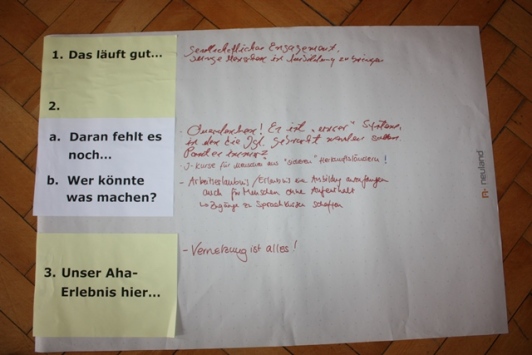 1. Das läuft gut...
gesellschaftliches Engagement,
junge Menschen in Ausbildung zu bringen
2.
a. Daran fehlt es
noch...
b. Wer könnte
was machen?
! Es ist "unser" System,
in dem die Jgl. gebracht werden sollen.
- J-Kurse für Menschen aus "sicheren" Herkunftsländern!
- Arbeitserlaubnis / Erlaubnis eine Ausbildg anzufangen
auch für Menschen ohne Aufenthalt
Zugänge zu Sprachkursen schaffen
3. Unser Aha-
Erlebnis hier...
- Vernetzung ist alles!
neuland